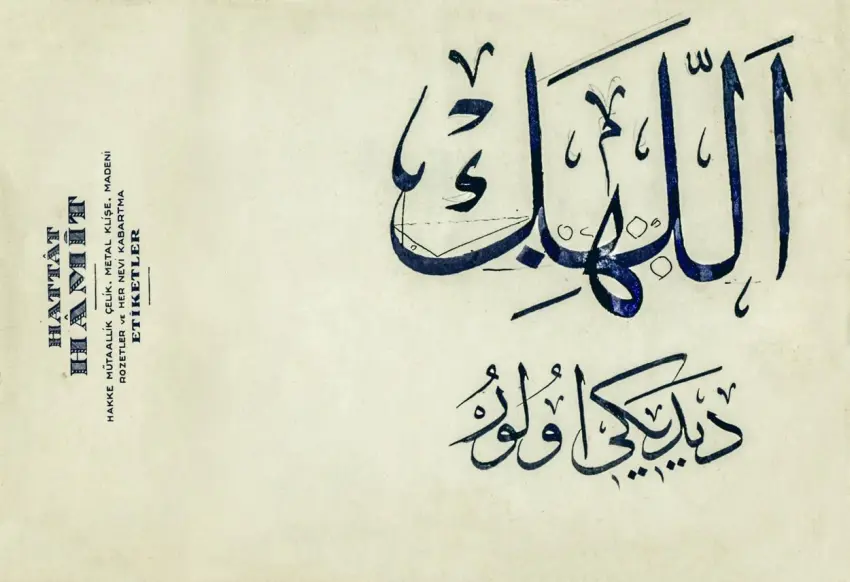 اللّهك
ديديكي اولور
HATTÂT
HÂMÎT
HAKKE MÜTAALLİK ÇELİK, METAL KLİŞE, MADENİ
ROZETLER ve HER NEVİ KABARTMA
ETİKETLER